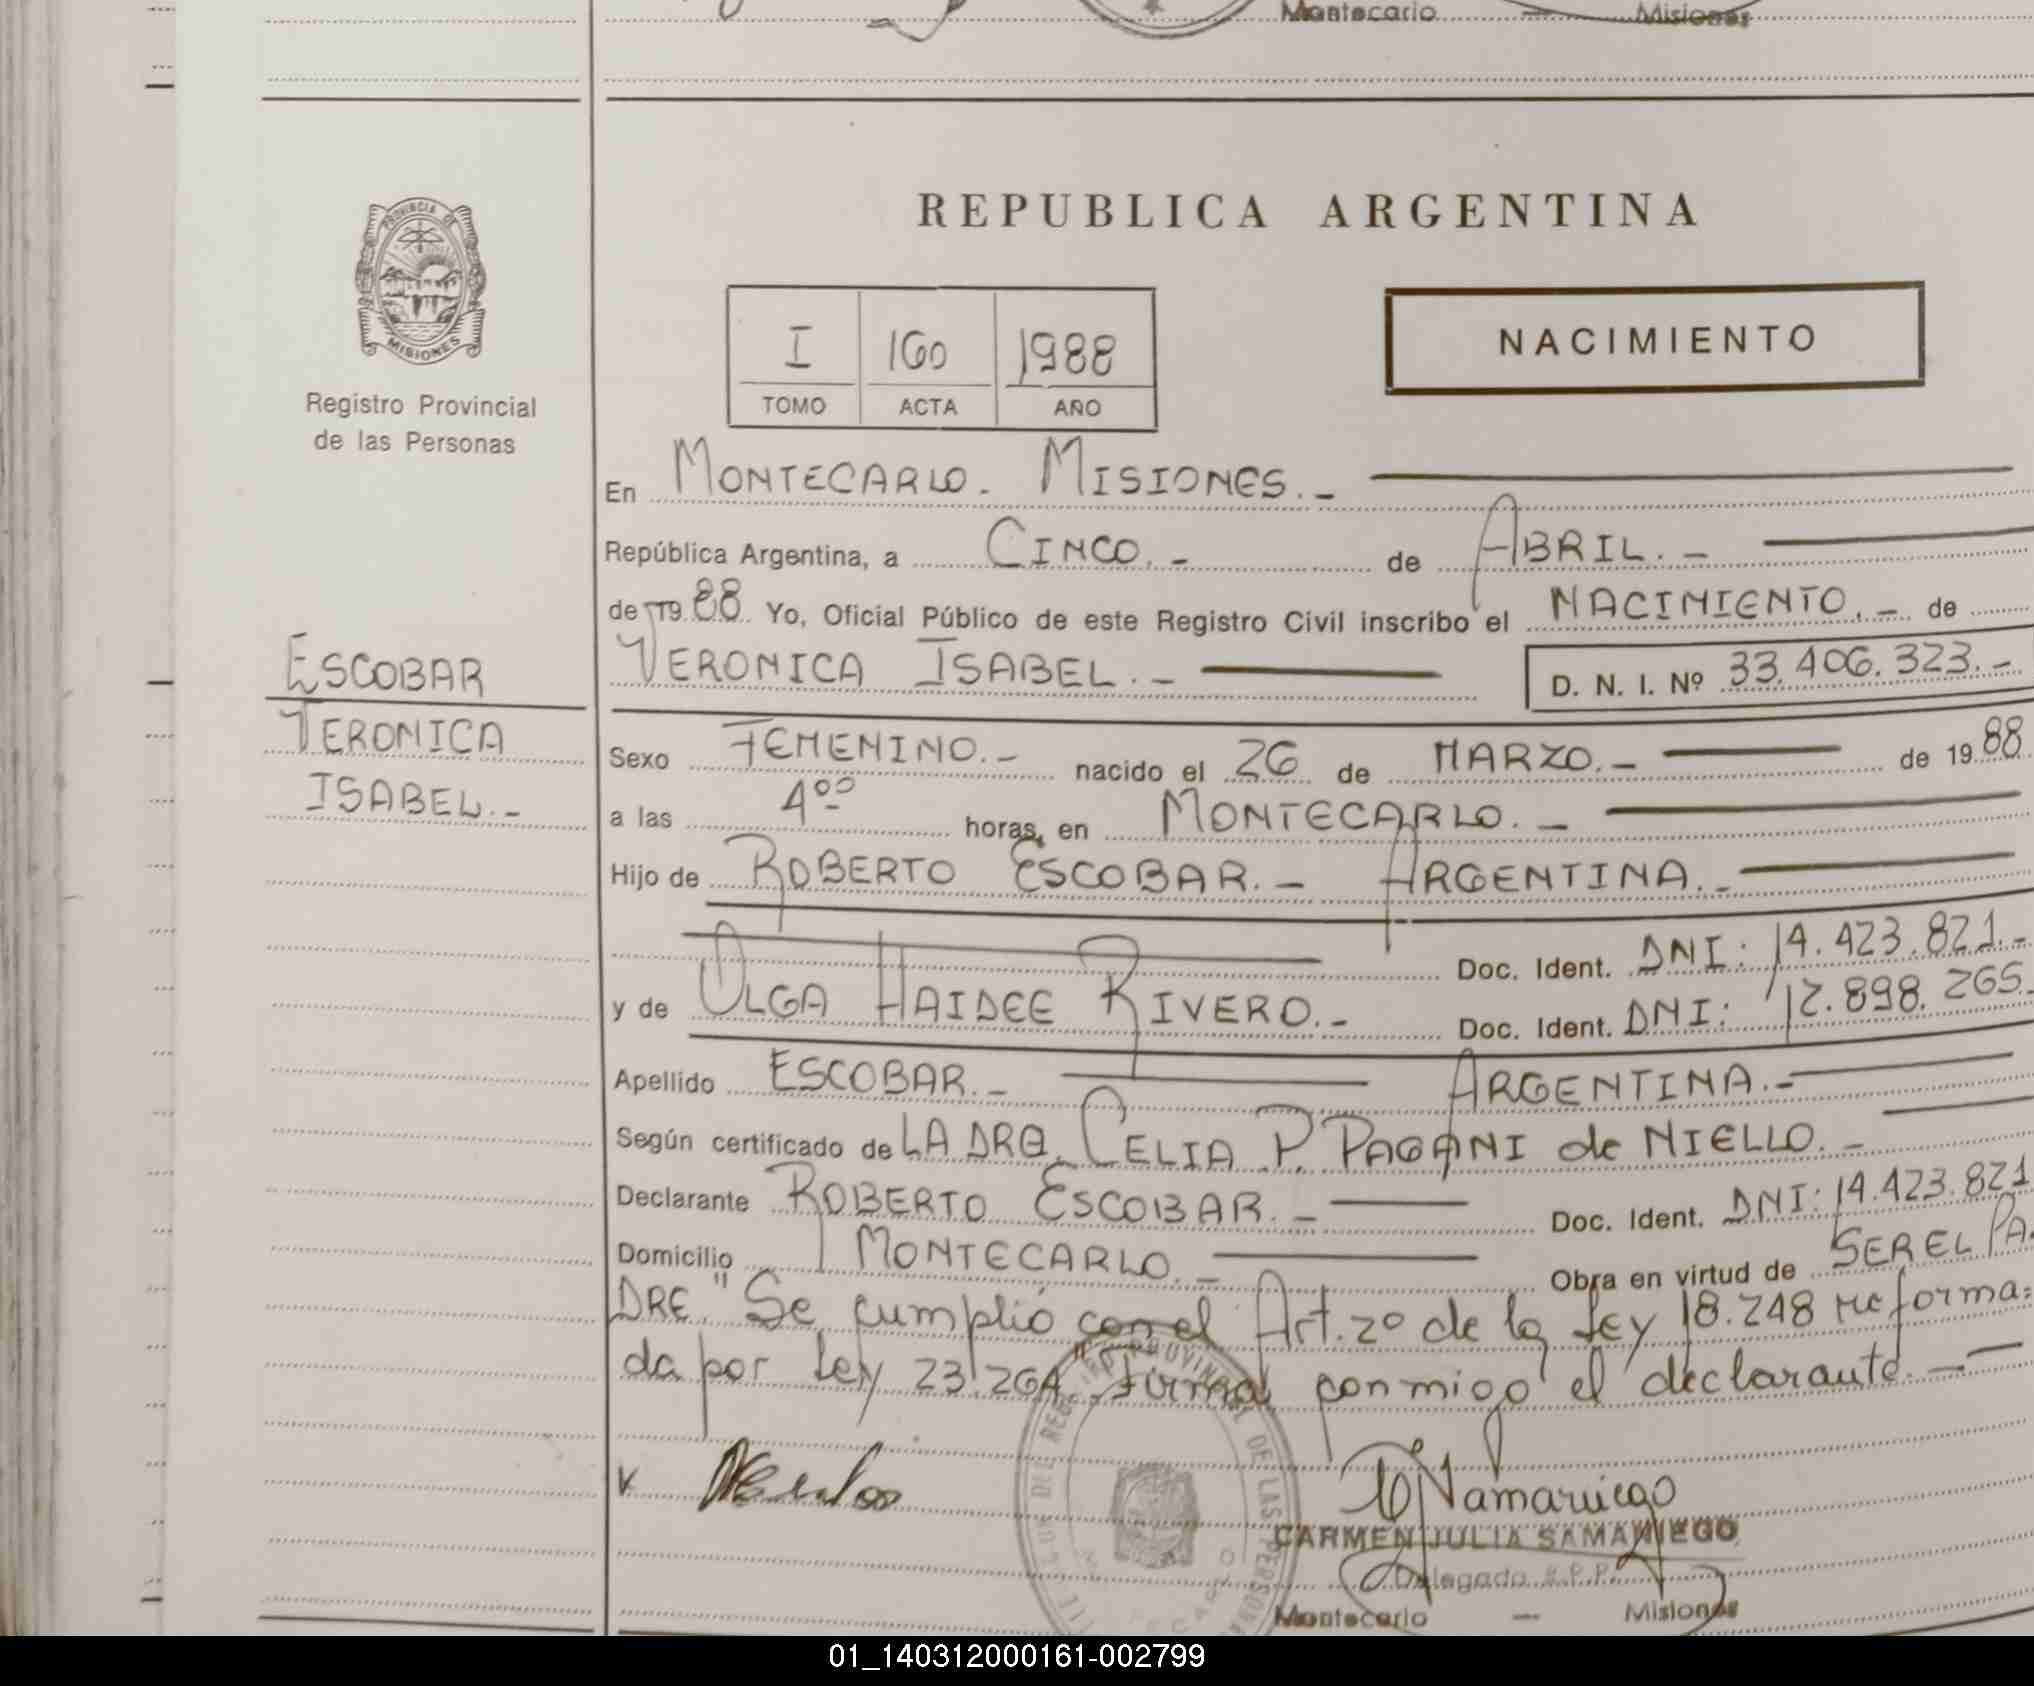 Montecarlo — Misiones
PROVINCIA DE
MISIONES
Registro Provincial
de las Personas
REPUBLICA ARGENTINA
I 160 1988
TOMO ACTA AÑO
NACIMIENTO
En MONTECARLO. MISIONES.-
República Argentina, a CINCO.- de ABRIL.-
de 19 88 Yo, Oficial Público de este Registro Civil inscribo el NACIMIENTO.- de
ESCOBAR
VERONICA
ISABEL.-
VERONICA ISABEL.- D. N. I. Nº 33.406.323.-
Sexo FEMENINO.- nacido el 26 de MARZO.- de 19 88
a las 4ºº horas, en MONTECARLO.-
Hijo de ROBERTO ESCOBAR.- ARGENTINA.-
Doc. Ident. DNI: 14.423.821.-
y de OLGA HAIDEE RIVERO.- Doc. Ident. DNI: 12.898.265.
Apellido ESCOBAR.- ARGENTINA.-
Según certificado de LA DRA. CELIA P. PAGANI de NIELLO.-
Declarante ROBERTO ESCOBAR.- Doc. Ident. DNI: 14.423.821
Domicilio MONTECARLO.- Obra en virtud de SER EL PA-
DRE. "Se cumplió con el Art. 2º de la Ley 18.248 reforma=
da por Ley 23.264" Firma conmigo el declarante.-
CARMEN JULIA SAMANIEGO
Delegada R.P.P.
Montecarlo — Misiones
01_140312000161-002799